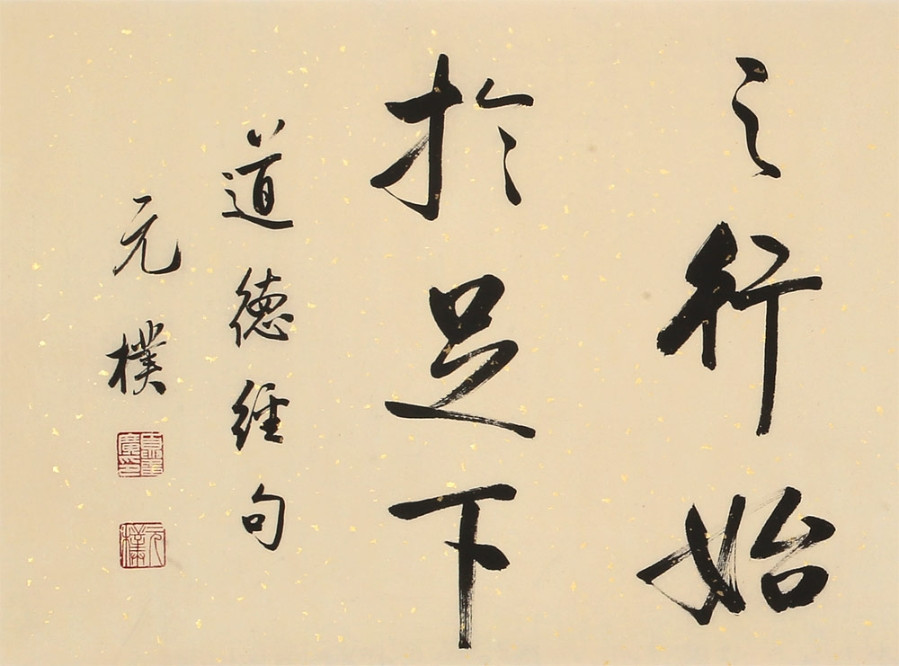 之行始
於足下
道德經句
元樸
元樸